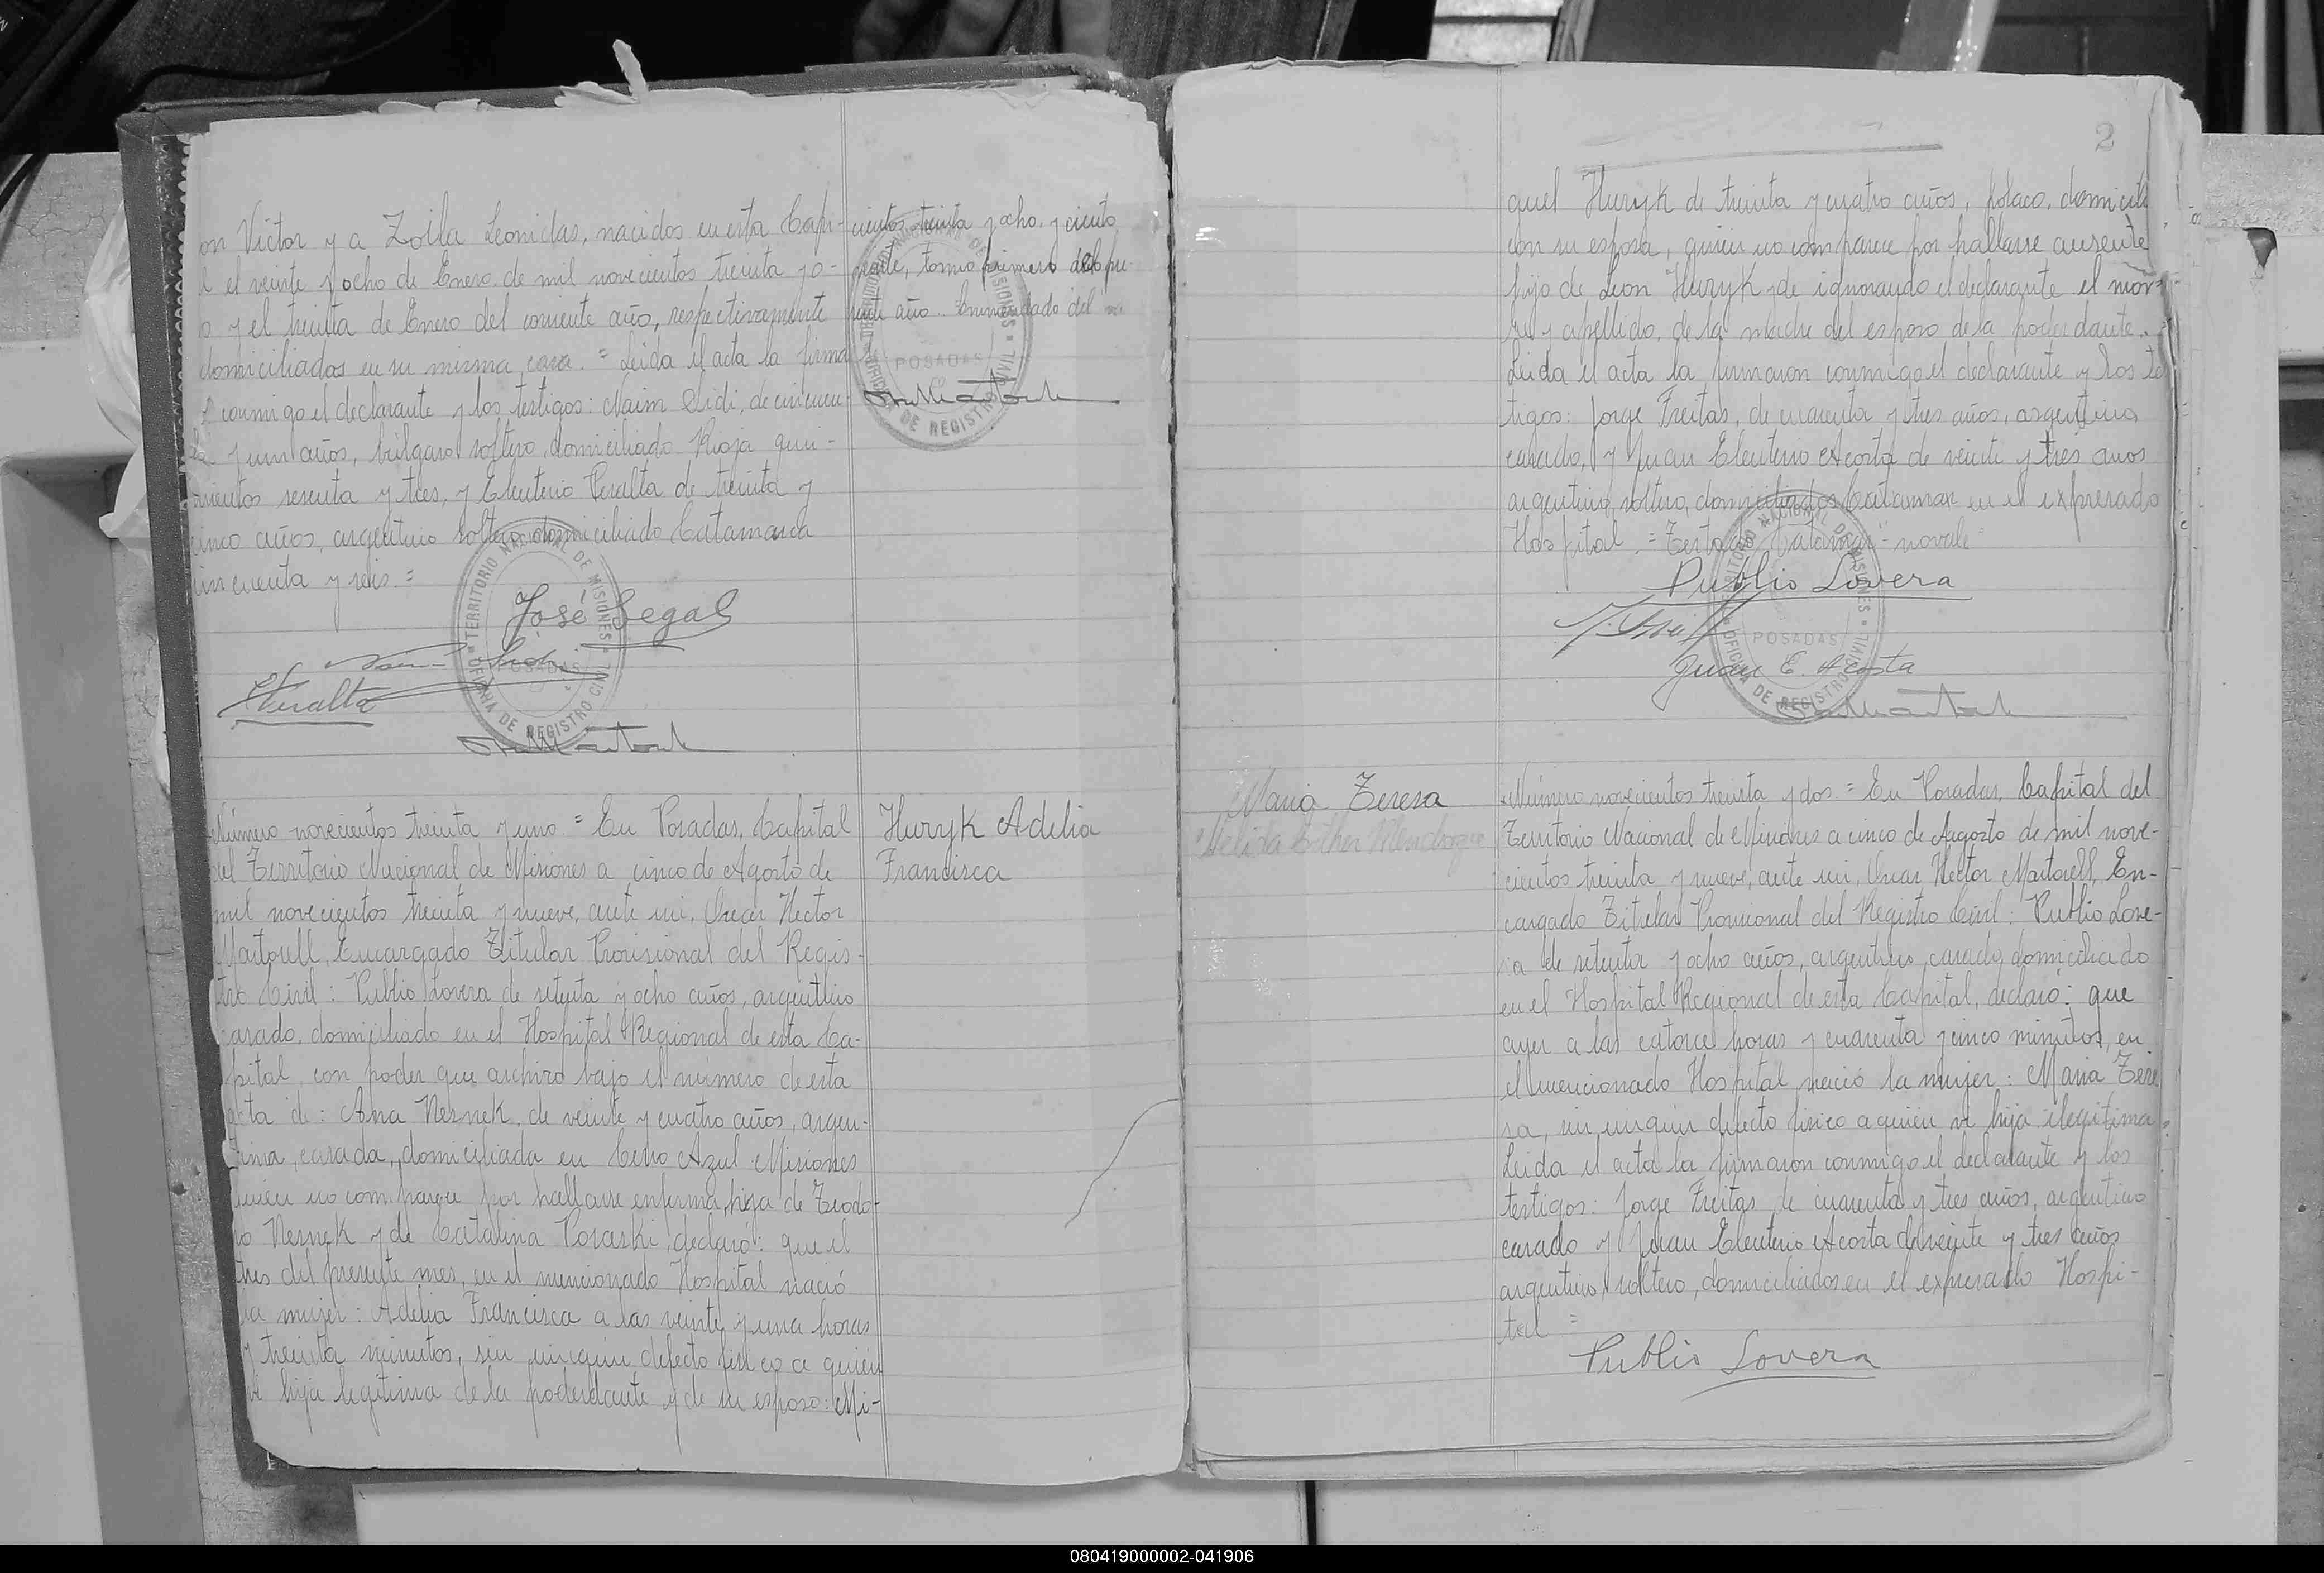 on Victor y a Zoila Leonidas, nacidos en esta Capi-
l el veinte y ocho de Enero de mil novecientos treinta y o-
o y el treinta de Enero del corriente año, respectivamente
domiciliados en su misma casa.= Leida el acta la firma
conmigo el declarante y los testigos: Naim Sidi, de cincuen-
ta y un años, búlgaro soltero, domiciliado Rioja qui-
nientos sesenta y tres, y Eleuterio Peralta de treinta y
cinco años, argentino soltero domiciliado Catamarca
cincuenta y seis.=
cientos treinta y ocho y ciento
veinte, tomo primero del pre-
sente año. Enmendado del
TERRITORIO NACIONAL DE MISIONES
POSADAS
OFICINA DE REGISTRO CIVIL
José Segal
Naim Sidi
EPeralta
TERRITORIO NACIONAL DE MISIONES
POSADAS
OFICINA DE REGISTRO CIVIL
Huryk Adelia
Francisca
Número novecientos treinta y uno.= En Posadas, Capital
del Territorio Nacional de Misiones a cinco de Agosto de
mil novecientos treinta y nueve, ante mi, Oscar Hector
Martorell, Encargado Titular Provisional del Regis-
tro Civil: Publio Lovera de setenta y ocho años, argentino
casado, domiciliado en el Hospital Regional de esta Ca-
pital, con poder que archivo bajo el número de esta
acta de: Ana Nesnek, de veinte y cuatro años, argen-
tina, casada, domiciliada en Cerro Azul Misiones
quien no comparece por hallarse enferma, hija de Teodo-
ro Nesnek y de Catalina Posaski, declaró: que el
tres del presente mes, en el mencionado Hospital nació
la mujer: Adelia Francisca a las veinte y una horas
y treinta minutos, sin ningun defecto fisico a quien
vi hija legitima de la poderdante y de su esposo: Mi-
2
quel Huryk de treinta y cuatro años, polaco, domicilia
con su esposa, quien no comparece por hallarse ausente
hijo de Leon Huryk y de ignorando el declarante el nom-
bre y apellido de la madre del esposo de la poderdante.
Leida el acta la firmaron conmigo el declarante y los te
tigos: Jorge Freitas, de cuarenta y tres años, argentino
casado, y Juan Eleuterio Acosta de veinte y tres años
argentino, soltero, domiciliados Catamar en el expresado
Hospital.= Testado "Catamar" no vale=
Publio Lovera
Juan E. Acosta
TERRITORIO NACIONAL DE MISIONES
POSADAS
OFICINA DE REGISTRO CIVIL
Maria Teresa
Nelida Esther Mendoza
Número novecientos treinta y dos.= En Posadas, Capital del
Territorio Nacional de Misiones a cinco de Agosto de mil nove-
cientos treinta y nueve, ante mi, Oscar Hector Martorell, En-
cargado Titular Provisional del Registro Civil: Publio Love-
ra de setenta y ocho años, argentino, casado, domiciliado
en el Hospital Regional de esta Capital, declaró: que
ayer a las catorce horas y cuarenta y cinco minutos, en
el mencionado Hospital nació la mujer: Maria Tere
sa, sin ningun defecto fisico a quien vi hija ilegitima
Leida el acta la firmaron conmigo el declarante y los
testigos: Jorge Freitas de cuarenta y tres años, argentino
casado y Juan Eleuterio Acosta de veinte y tres años
argentino soltero, domiciliados en el expresado Hospi-
tal.=
Publio Lovera
080419000002-041906